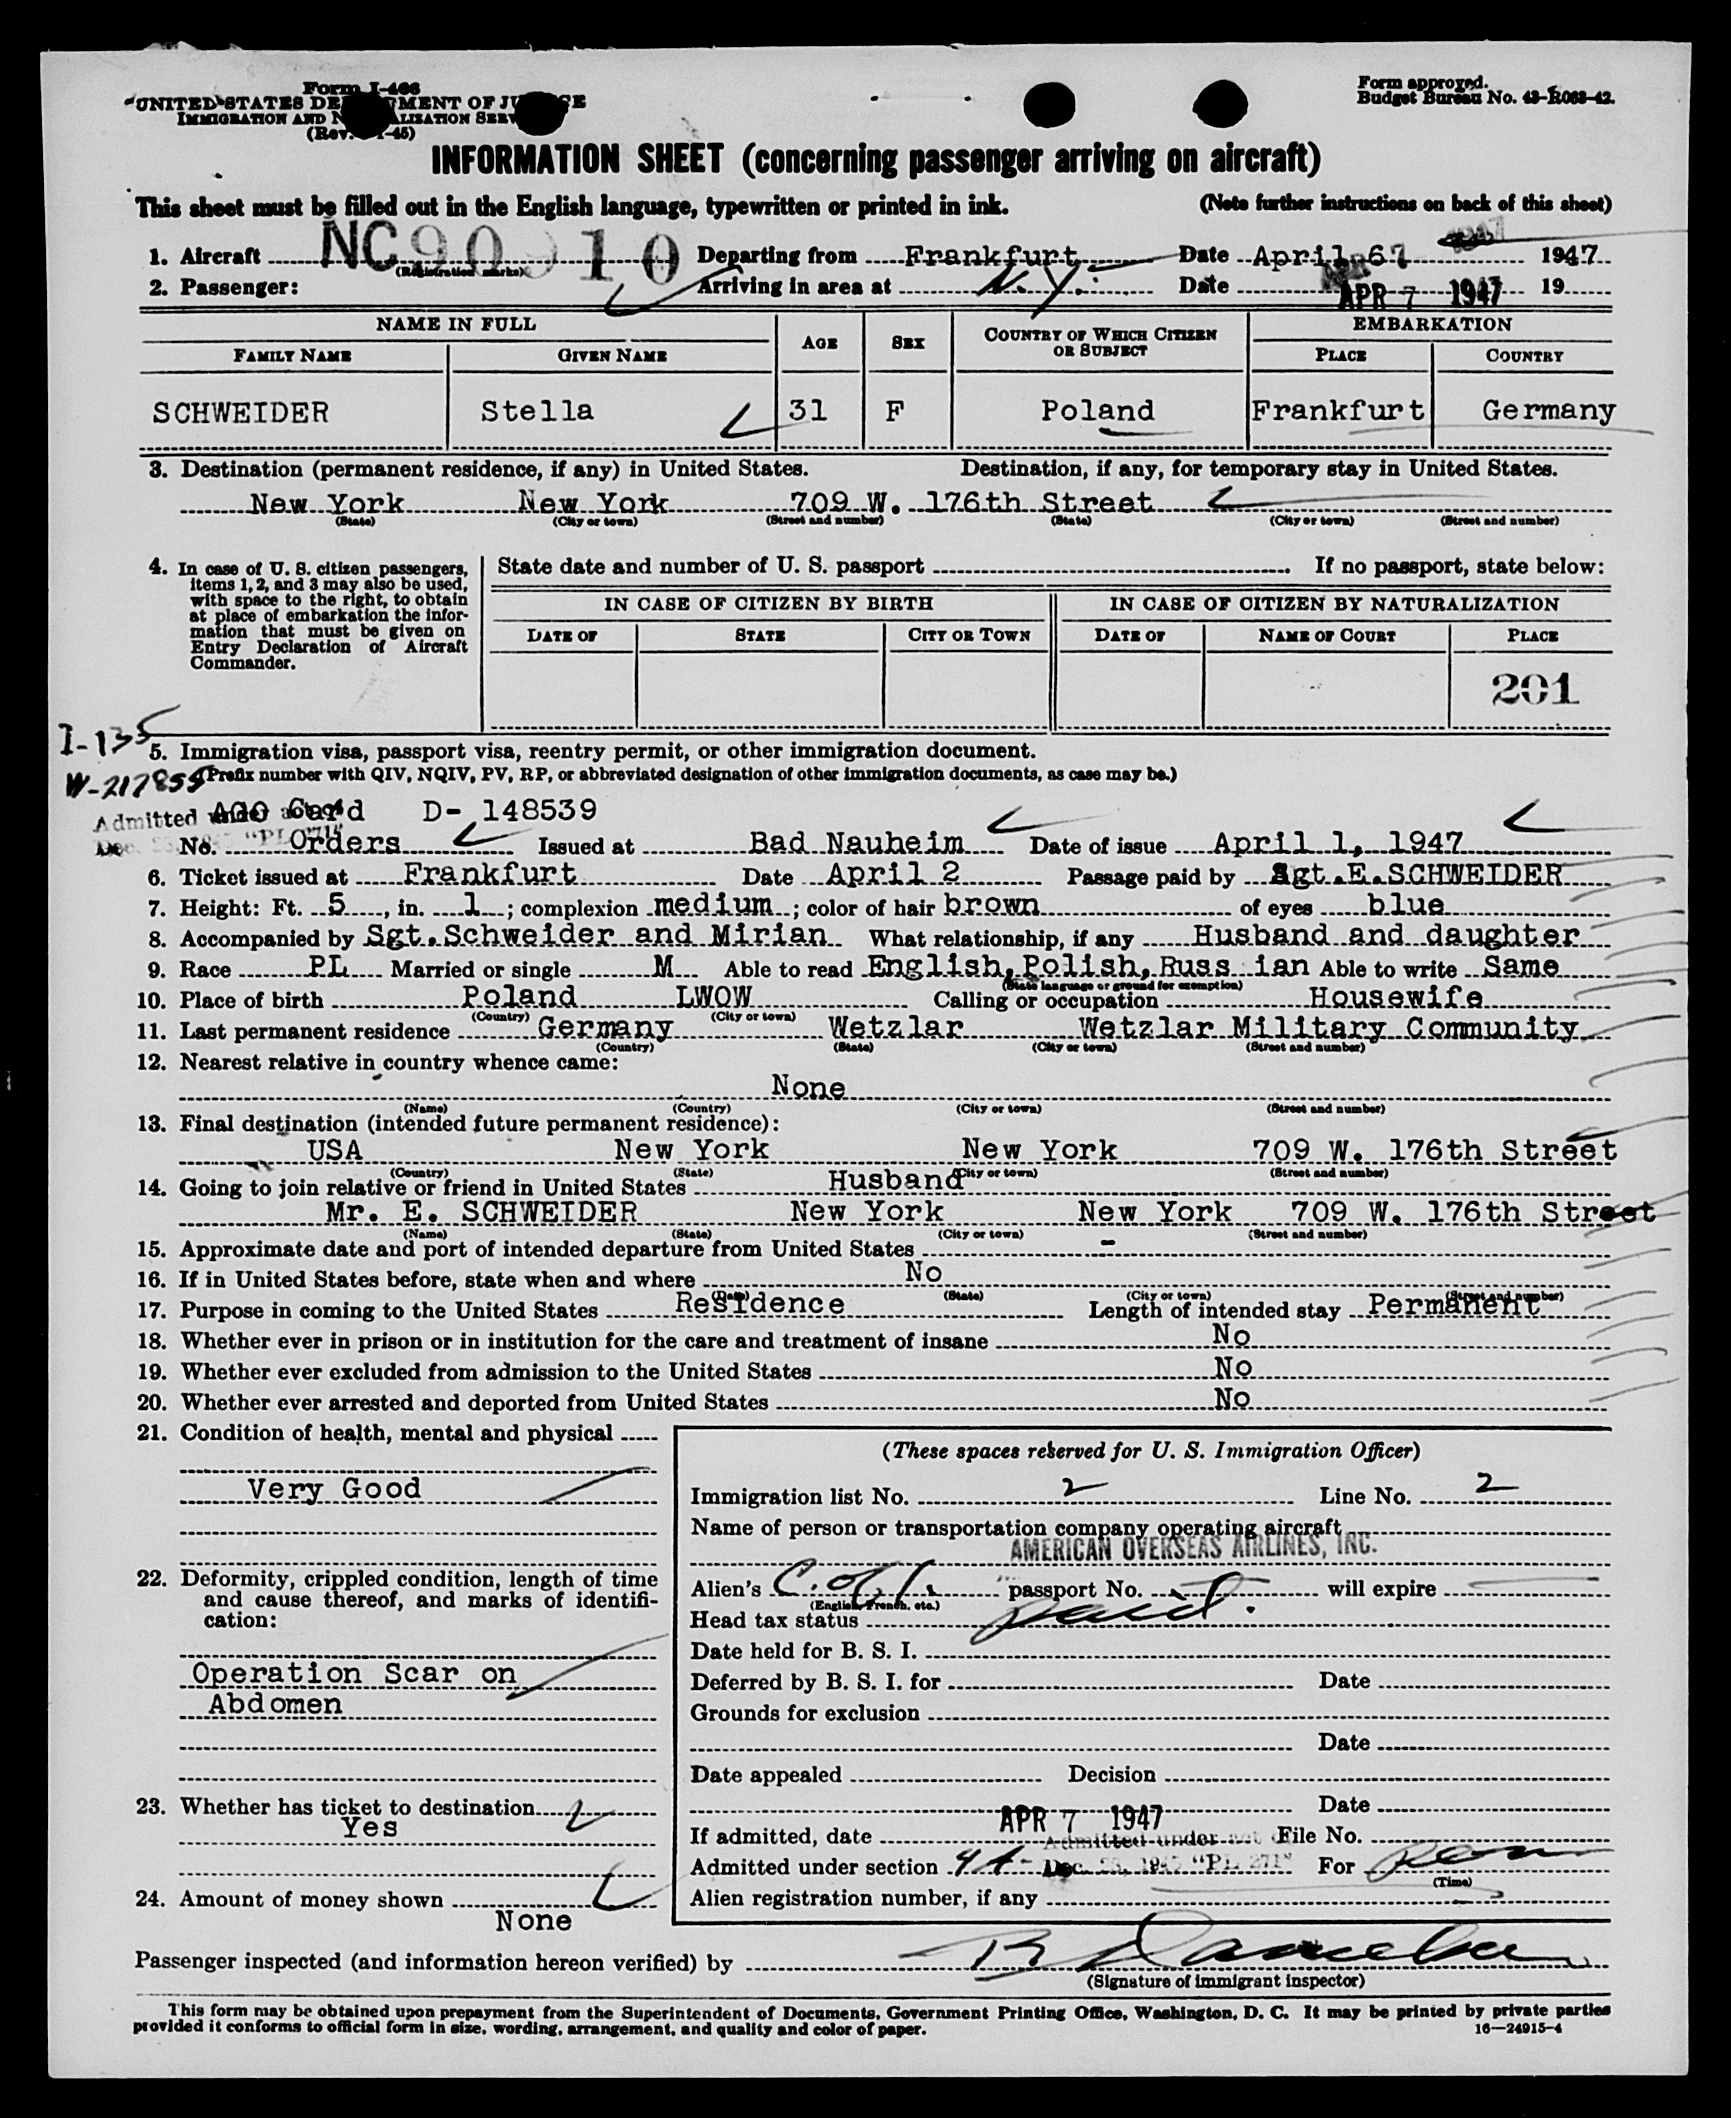 Form I-466
UNITED STATES DEPARTMENT OF JUSTICE
IMMIGRATION AND NATURALIZATION SERVICE
(Rev. -45)
Form approved.
Budget Bureau No. 43-R063-42.
INFORMATION SHEET (concerning passenger arriving on aircraft)
This sheet must be filled out in the English language, typewritten or printed in ink. (Note further instructions on back of this sheet)
1. Aircraft NC90910 Departing from Frankfurt Date April 67 1947
(Registration marks)
2. Passenger: Arriving in area at N.Y. Date APR 7 1947 19
NAME IN FULL AGE SEX COUNTRY OF WHICH CITIZEN OR SUBJECT EMBARKATION
FAMILY NAME GIVEN NAME PLACE COUNTRY
SCHWEIDER Stella 31 F Poland Frankfurt Germany
3. Destination (permanent residence, if any) in United States. Destination, if any, for temporary stay in United States.
New York New York 709 W. 176th Street
(State) (City or town) (Street and number) (State) (City or town) (Street and number)
4. In case of U. S. citizen passengers,
items 1, 2, and 3 may also be used,
with space to the right, to obtain
at place of embarkation the infor-
mation that must be given on
Entry Declaration of Aircraft
Commander.
State date and number of U. S. passport If no passport, state below:
IN CASE OF CITIZEN BY BIRTH IN CASE OF CITIZEN BY NATURALIZATION
DATE OF STATE CITY OR TOWN DATE OF NAME OF COURT PLACE
201
I-135
5. Immigration visa, passport visa, reentry permit, or other immigration document.
W-217855 (Prefix number with QIV, NQIV, PV, RP, or abbreviated designation of other immigration documents, as case may be.)
Admitted under act of AGO Card D- 148539
Dec. "PL 271" No. Orders Issued at Bad Nauheim Date of issue April 1, 1947
6. Ticket issued at Frankfurt Date April 2 Passage paid by Sgt.E.SCHWEIDER
7. Height: Ft. 5, in. 1; complexion medium; color of hair brown of eyes blue
8. Accompanied by Sgt.Schweider and Mirian What relationship, if any Husband and daughter
9. Race PL Married or single M Able to read English,Polish,Russ ian Able to write Same
(State language or ground for exemption)
10. Place of birth Poland LWOW Calling or occupation Housewife
(Country) (City or town)
11. Last permanent residence Germany Wetzlar Wetzlar Military Community
(Country) (State) (City or town) (Street and number)
12. Nearest relative in country whence came:
None
(Name) (Country) (City or town) (Street and number)
13. Final destination (intended future permanent residence):
USA New York New York 709 W. 176th Street
(Country) (State) (City or town) (Street and number)
14. Going to join relative or friend in United States Husband
Mr. E. SCHWEIDER New York New York 709 W. 176th Street
(Name) (State) (City or town) (Street and number)
15. Approximate date and port of intended departure from United States -
16. If in United States before, state when and where No
(Date) (State) (City or town) (Street and number)
17. Purpose in coming to the United States Residence Length of intended stay Permanent
18. Whether ever in prison or in institution for the care and treatment of insane No
19. Whether ever excluded from admission to the United States No
20. Whether ever arrested and deported from United States No
21. Condition of health, mental and physical
Very Good
22. Deformity, crippled condition, length of time
and cause thereof, and marks of identifi-
cation:
Operation Scar on
Abdomen
23. Whether has ticket to destination
Yes
24. Amount of money shown
None
(These spaces reserved for U. S. Immigration Officer)
Immigration list No. 2 Line No. 2
Name of person or transportation company operating aircraft
AMERICAN OVERSEAS AIRLINES, INC.
Alien's C. of I. passport No. will expire
(English, French, etc.)
Head tax status paid.
Date held for B. S. I.
Deferred by B. S. I. for Date
Grounds for exclusion
Date
Date appealed Decision
Date
If admitted, date APR 7 1947 File No.
Admitted under act
Admitted under section Dec. "PL 271" For
(Time)
Alien registration number, if any
Passenger inspected (and information hereon verified) by
(Signature of immigrant inspector)
This form may be obtained upon prepayment from the Superintendent of Documents, Government Printing Office, Washington, D. C. It may be printed by private parties
provided it conforms to official form in size, wording, arrangement, and quality and color of paper. 16—24915-4